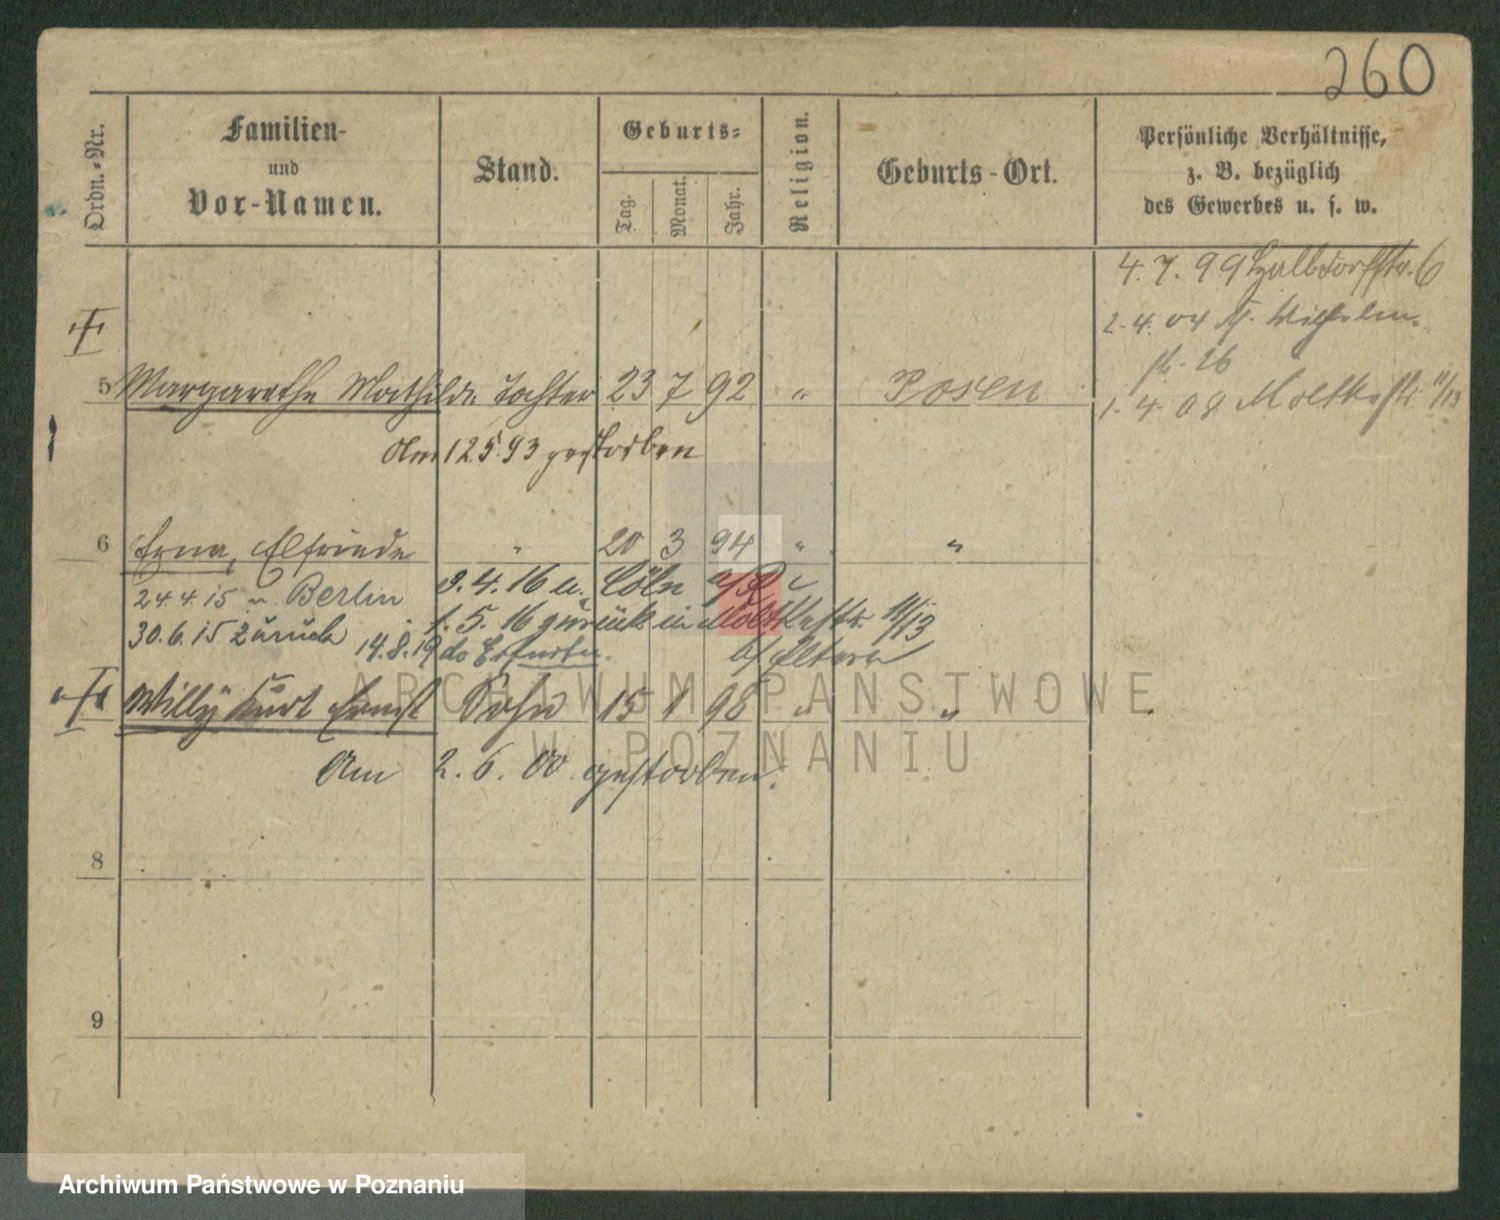 260
Ordn.-Nr.
Familien-
und
Vor-Namen.
Stand.
Geburts-
Tag.
Monat.
Jahr.
Religion.
Geburts-Ort.
Persönliche Verhältnisse,
z. B. bezüglich
des Gewerbes u. s. w.
4.7.99 Halbdorfstr. 6
2.4.04 Wilhelm-
str. 26
1.4.08 Moltkestr 11/13
5 Margarethe Mathilde Tochter 23 7 92 " Posen
Am 12.5.93 gestorben
6 Erna, Elfriede " 20 3 94 " "
24.4.15 n. Berlin
9.4.16 n. Cöln a/R
30.6.15 zurück
1.5.16 zurück in Moltkestr. 11/13
14.8.19 do Erfurt
b/ Eltern
Willy Kurt Ernst Sohn 15 1 98 " "
Am 2.6.00 gestorben.
8
9
ARCHIWUM PAŃSTWOWE
W POZNANIU
Archiwum Państwowe w Poznaniu